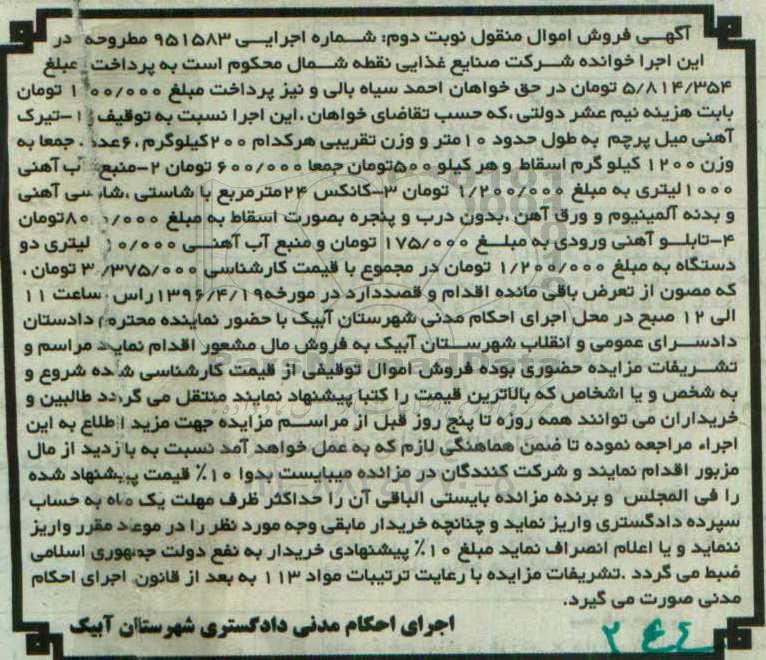 آگهـی فروش اموال منقول نوبت دوم: شـماره اجرایـی ۹۵۱۵۸۳ مطروحه در
این اجرا خوانده شـرکت صنایع غذایی نقطه شـمال محکوم است به پرداخت مبلغ
۵/۸۱۴/۳۵۴ تومان در حق خواهان احمد سیاه بالی و نیز پرداخت مبلغ تومان
بابت هزینه نیم عشر دولتی ،که حسب تقاضای خواهان ،این اجرا نسبت به توقیف ۱-تیرک
آهنی میل پرچم به طول حدود ۱۰متر و وزن تقریبی هرکدام ۲۰۰کیلوگرم ،۶عدد ، جمعا به
وزن ۱۲۰۰ کیلو گرم اسقاط و هر کیلو ۵۰۰تومان جمعا ۶۰۰/۰۰۰ تومان ۲-منبع آب آهنی
۱۰۰۰لیتری به مبلغ ۱/۲۰۰/۰۰۰ تومان ۳-کانکس ۲۴مترمربع با شاستی ،شاسی آهنی
و بدنه آلمینیوم و ورق آهن ،بدون درب و پنجره بصورت اسقاط به مبلغ تومان
۴-تابلـو آهنی ورودی به مبلـغ ۱۷۵/۰۰۰ تومان و منبع آب آهنـی لیتری دو
دستگاه به مبلغ ۱/۲۰۰/۰۰۰ تومان در مجموع با قیمت کارشناسی ۳/۳۷۵/۰۰۰ تومان ،
که مصون از تعرض باقی مانده اقدام و قصددارد در مورخه۱۳۹۶/۴/۱۹راس ساعت ۱۱
الی ۱۲ صبح در محل اجرای احکام مدنی شهرستان آبیک با حضور نماینده محترم دادستان
دادسـرای عمومی و انقلاب شهرسـتان آبیک به فروش مال مشعور اقدام نماید مراسم و
تشـریفات مزایده حضوری بوده فروش اموال توقیفی از قیمت کارشناسی شده شروع و
به شخص و یا اشخاص که بالاترین قیمت را کتبا پیشنهاد نمایند منتقل می گردد طالبین و
خریداران می توانند همه روزه تا پنج روز قبل از مراسـم مزایده جهت مزید اطلاع به این
اجراء مراجعه نموده تا ضمن هماهنگی لازم که به عمل خواهد آمد نسبت به بازدید از مال
مزبور اقدام نمایند و شرکت کنندگان در مزائده میبایست بدوا ۱۰٪ قیمت پیشنهاد شده
را فی المجلس و برنده مزائده بایستی الباقی آن را حداکثر ظرف مهلت یک ماه به حساب
سپرده دادگستری واریز نماید و چنانچه خریدار مابقی وجه مورد نظر را در موعد مقرر واریز
ننماید و یا اعلام انصراف نماید مبلغ ۱۰٪ پیشنهادی خریدار به نفع دولت جمهوری اسلامی
ضبط می گردد .تشریفات مزایده با رعایت ترتیبات مواد ۱۱۳ به بعد از قانون اجرای احکام
مدنی صورت می گیرد.
اجرای احکام مدنی دادگستری شهرستان آبیک
ParsNamadData